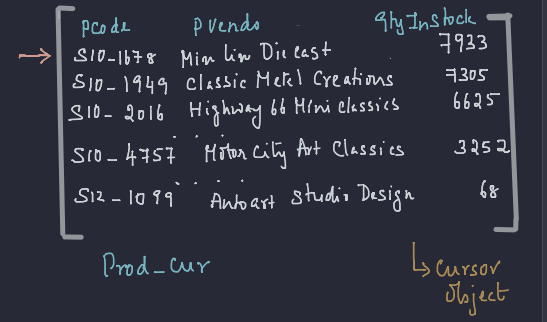 pcode pvendo qtyInstock
S10-1678 Min Lin Diecast 7933
S10-1949 Classic Metel Creations 7305
S10-2016 Highway 66 Mini classics 6625
S10-4757 Motor City Art Classics 3252
S12-1099 Autoart Studio Design 68
Prod_cur
Cursor
Object